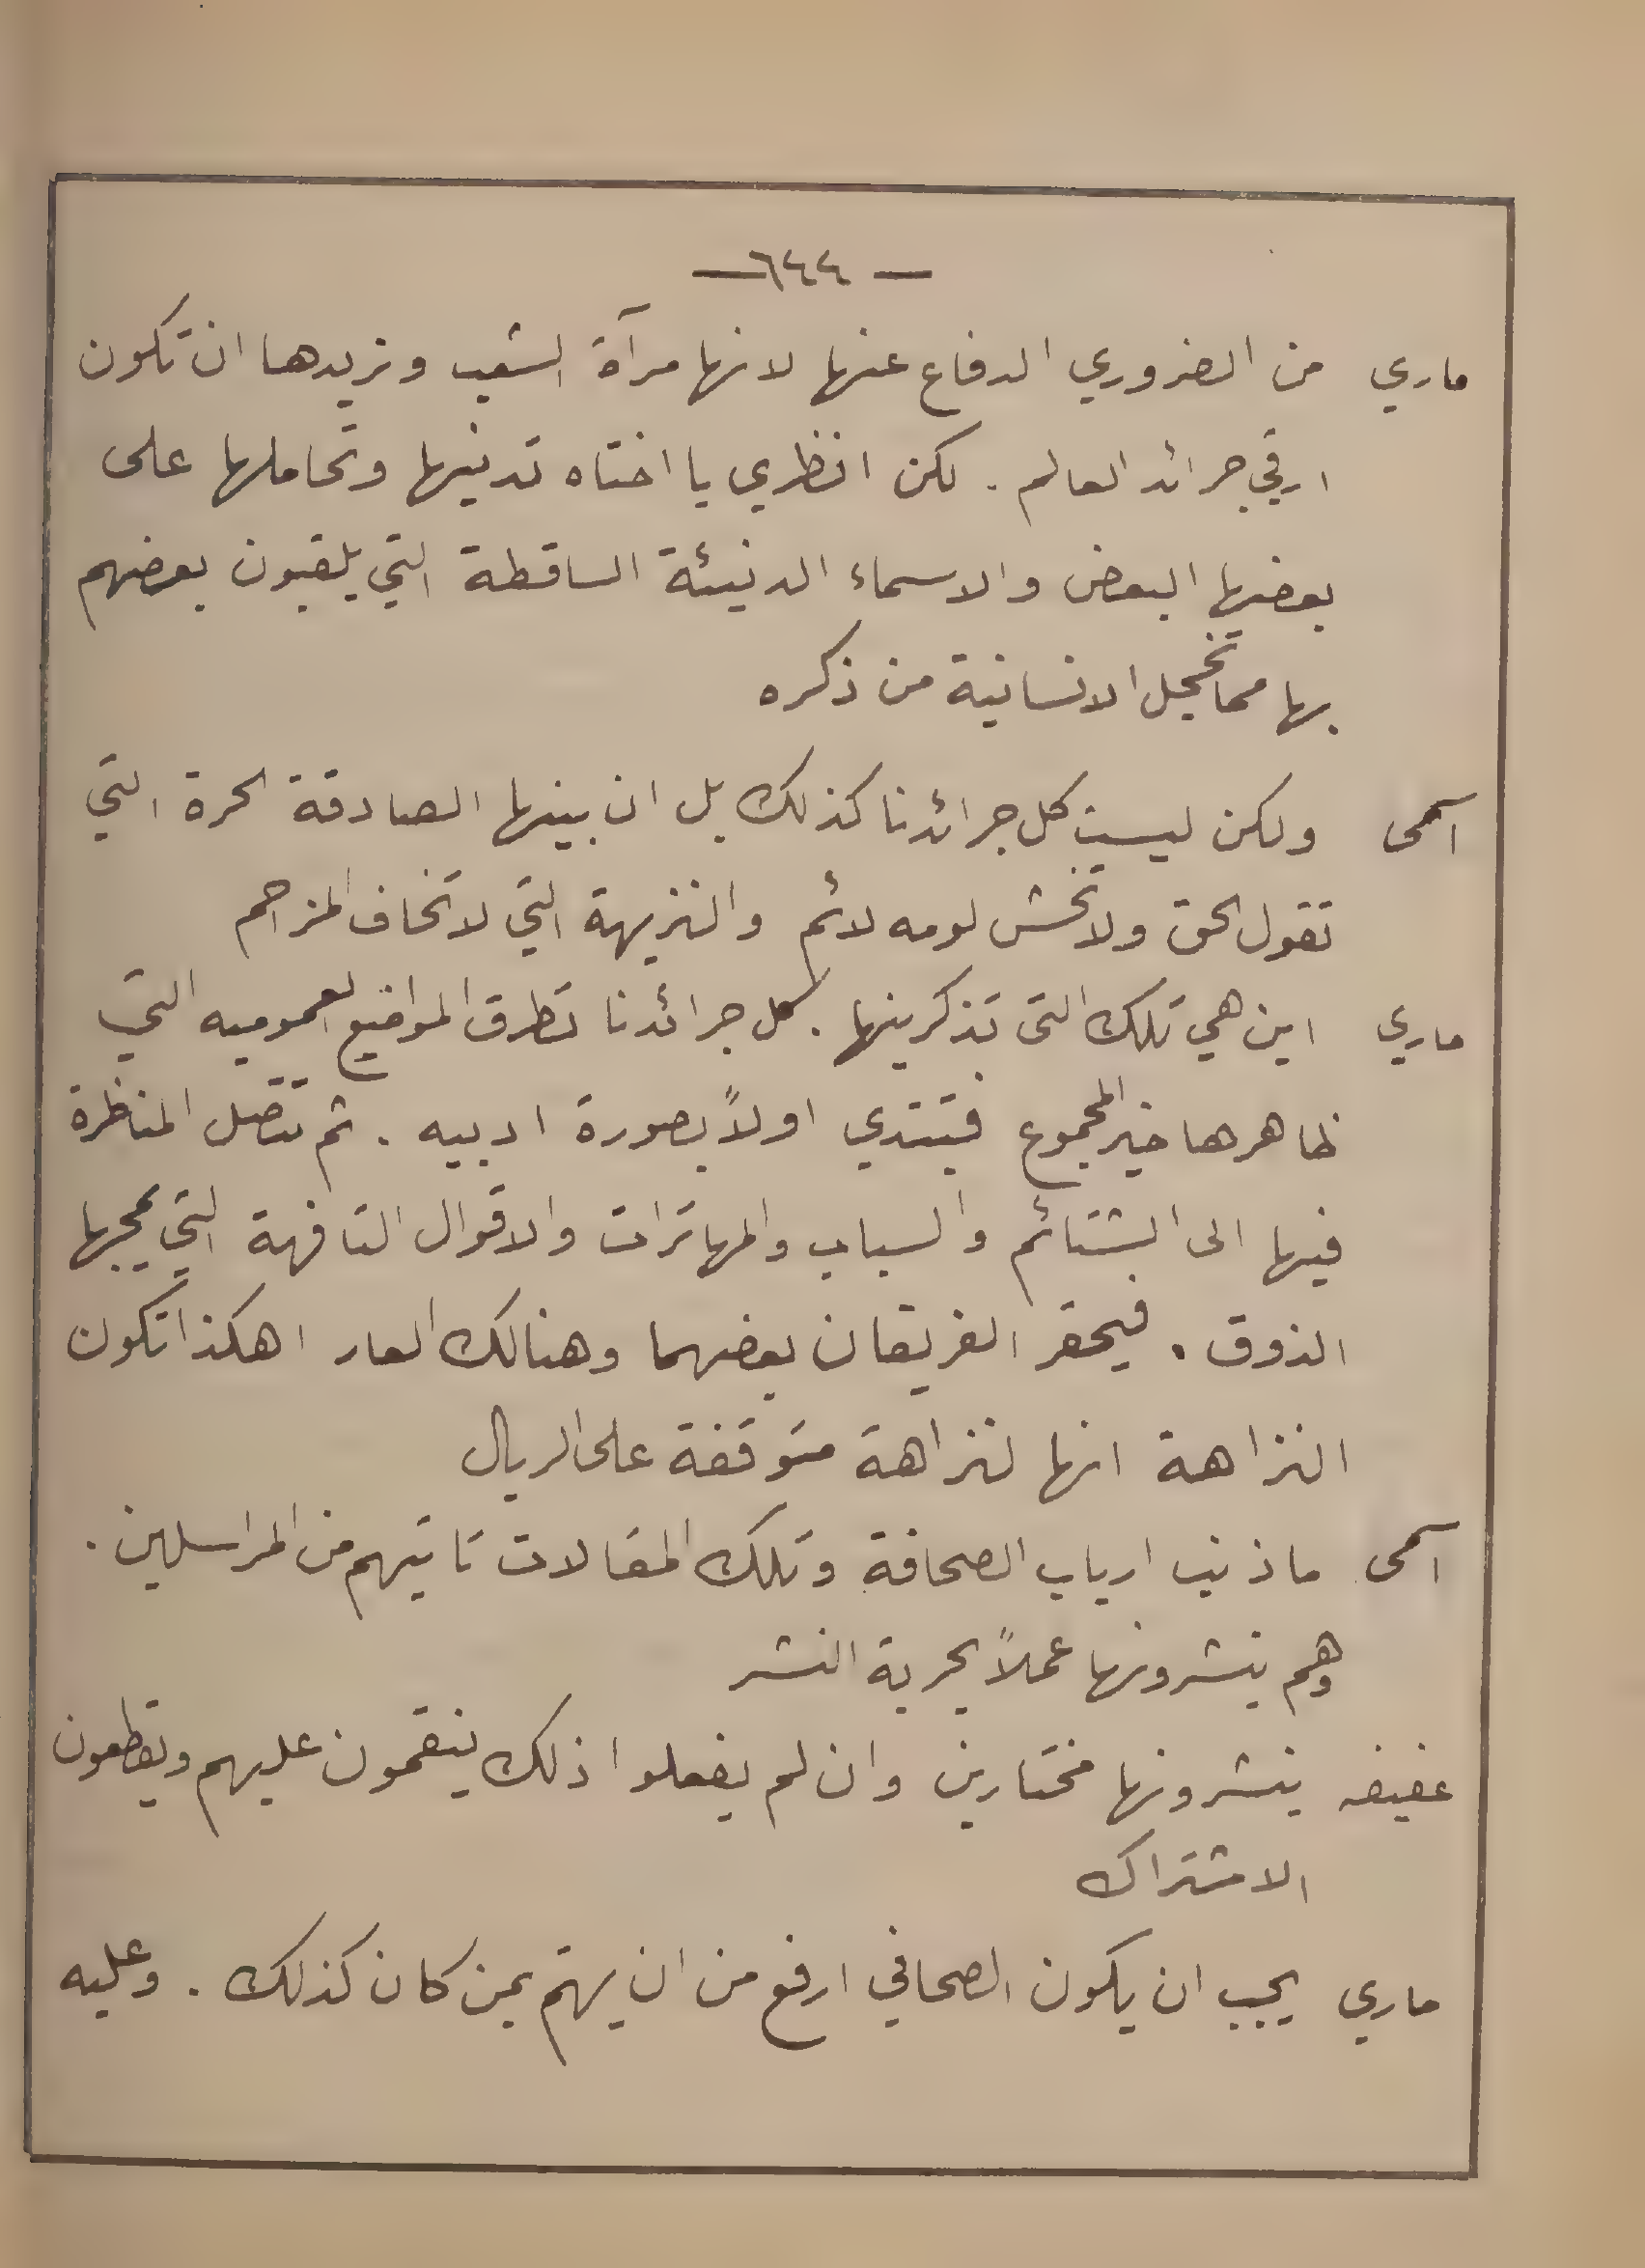 — ٦٤٤ —
ماري من الضروري الدفاع عنها لانها مرآة الشعب ونريدها ان تكون
ارقى جرائد العالم . لكن انظري يا اختاه تدنيها وتحاملها على
بعضها البعض والاسماء الدنيئة الساقطة التي يلقبون بعضهم
بها مما تخجل الانسانية من ذكره
اسمى ولكن ليست كل جرائدنا كذلك بل ان بينها الصادقة الحرة التي
تقول الحق ولا تخش لومه لائم والنزيهة التي لا تخاف المزاحم
ماري اين هي تلك التى تذكرينها . كل جرائدنا تطرق المواضيع العموميه التي
ظاهرها خير المجموع فتبتدي اولاً بصورة ادبيه . ثم تتصل المناظرة
فيها الى الشتائم والسباب والمهاترات والاقوال التافهة التي يمجها
الذوق . فيحقر الفريقان بعضهما وهنالك العار اهكذا تكون
النزاهة انها لنزاهة متوقفة على الريال
اسمى ما ذنب ارباب الصحافة وتلك المقالات تاتيهم من المراسلين .
وهم ينشرونها عملاً بحرية النشر
عفيفه ينشرونها مختارين وان لم يفعلوا ذلك ينقمون عليهم ويقطعون
الاشتراك
ماري يجب ان يكون الصحافي ارفع من ان يهتم بمن كان كذلك . وعليه